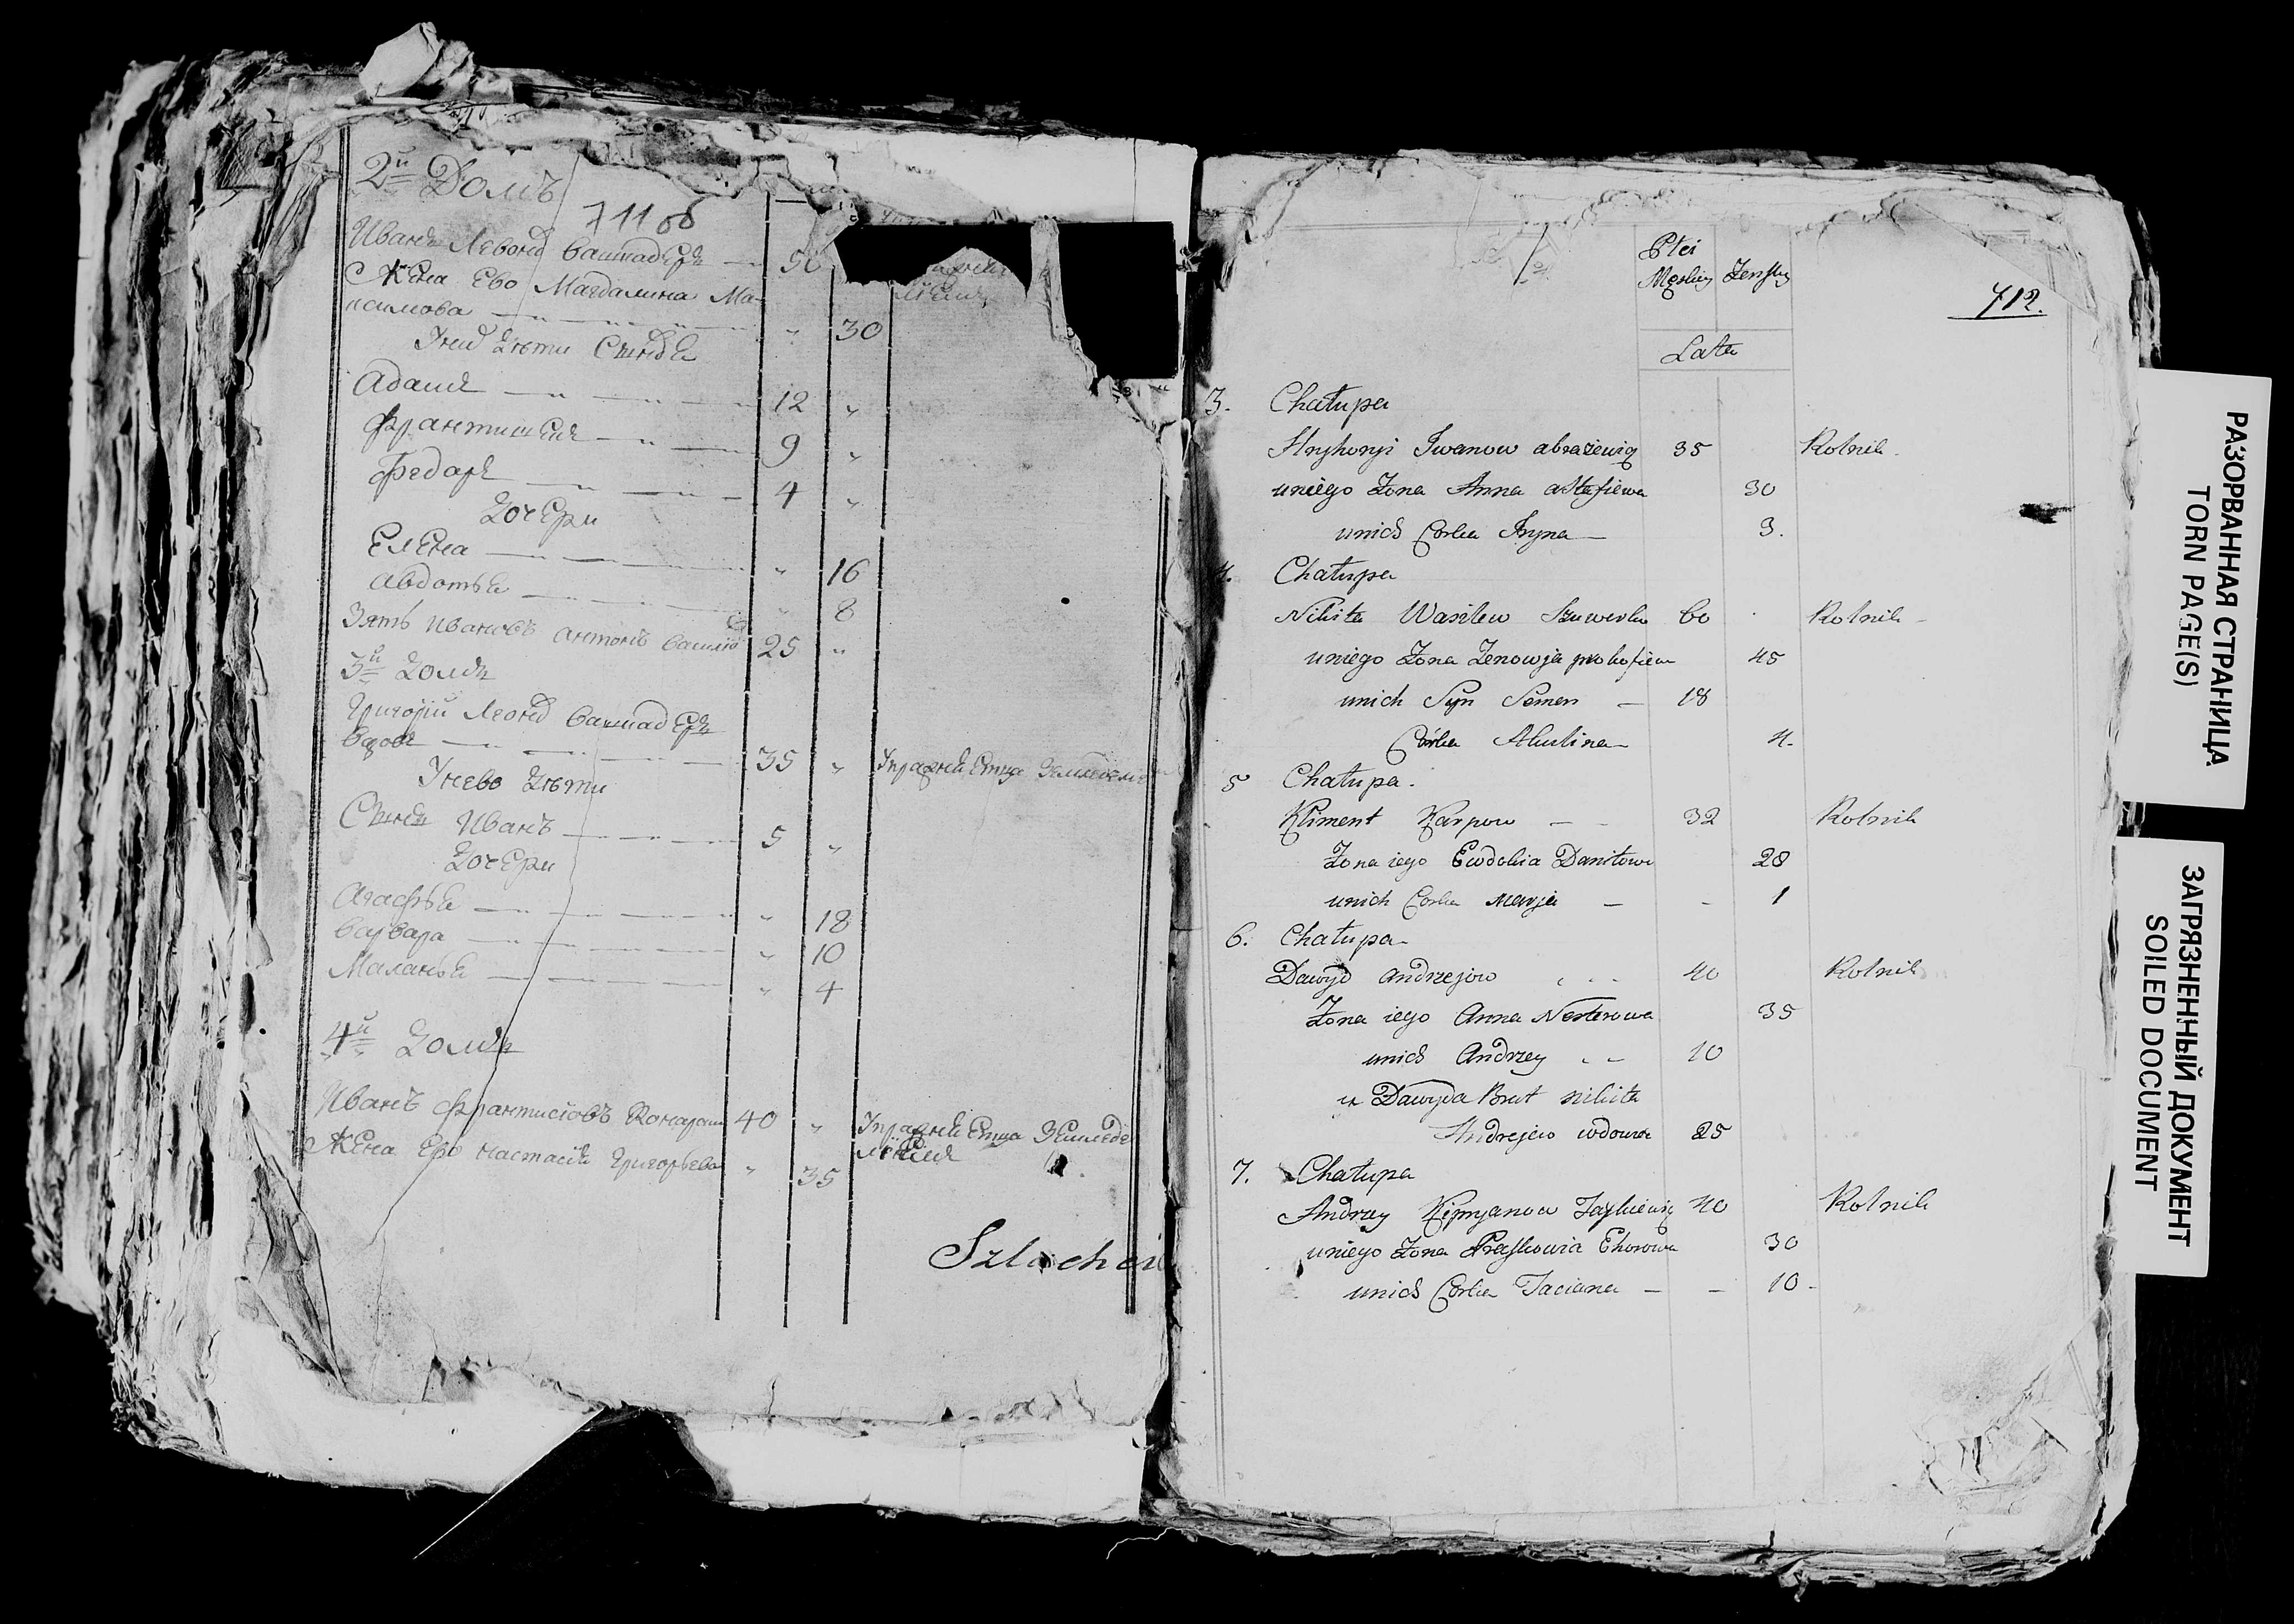 2й Домъ
711 об
Иванъ Левонъ Башмадеръ — 50
Жена Ево Магдалина Ма-
ксимова — " — " — " 30
Унихъ Дѣти Сынове
Адамъ — " — 12 "
Франтишекъ — " — 9 "
Федоръ — " — 4 "
Дочери
Елена — " 16
Авдотья — " 8
Зять Ивановъ Антонъ 25 "
3й Домъ
Григорій Леонъ Башмадеръ
вдовъ — " — 35 " Упражняется
Унево Дѣти
Сынъ Иванъ — " — 5 "
Дочери
Агафья — " — " 18
Варвара — " — " 10
Маланья — " — " 4
4й Домъ
Иванъ Франтисковъ 40 " Упражняется Земледе
лиемъ
Жена Ево Настасія Григорьева " 35
Szlachci
Płci
Męskiey Żenskiey
712.
Lata
3. Chałupa
Hryhoryi Iwanow abrażewicz 35 Rolnik
uniego Żona Anna astafiewa 30
unich Corka Iryna — 3.
4. Chałupa
Nikita Wasilew 60 Rolnik
uniego Żona Zenowja prokofiewa 45
unich Syn Semen — 18
Córka Akulina — 4.
5 Chałupa.
Kliment Karpow — 32 Rolnik
Żona iego Ewdokia Daniłowa 28
unich Corka Marja — - 1
6. Chałupa
Dawyd Andrzejow 40 Rolnik
Żona iego Anna Nesterowa 35
unich Andrzey 10
u Dawyda Brat nikita
Andrejew wdowa 25
7. Chałupa
Andrzey Kipryanow 40 Rolnik
uniego Żona Praskowia Ehorowa 30
unich Corka Taciana — - 10 -
РАЗОРВАННАЯ СТРАНИЦА
TORN PAGE(S)
ЗАГРЯЗНЕННЫЙ ДОКУМЕНТ
SOILED DOCUMENT